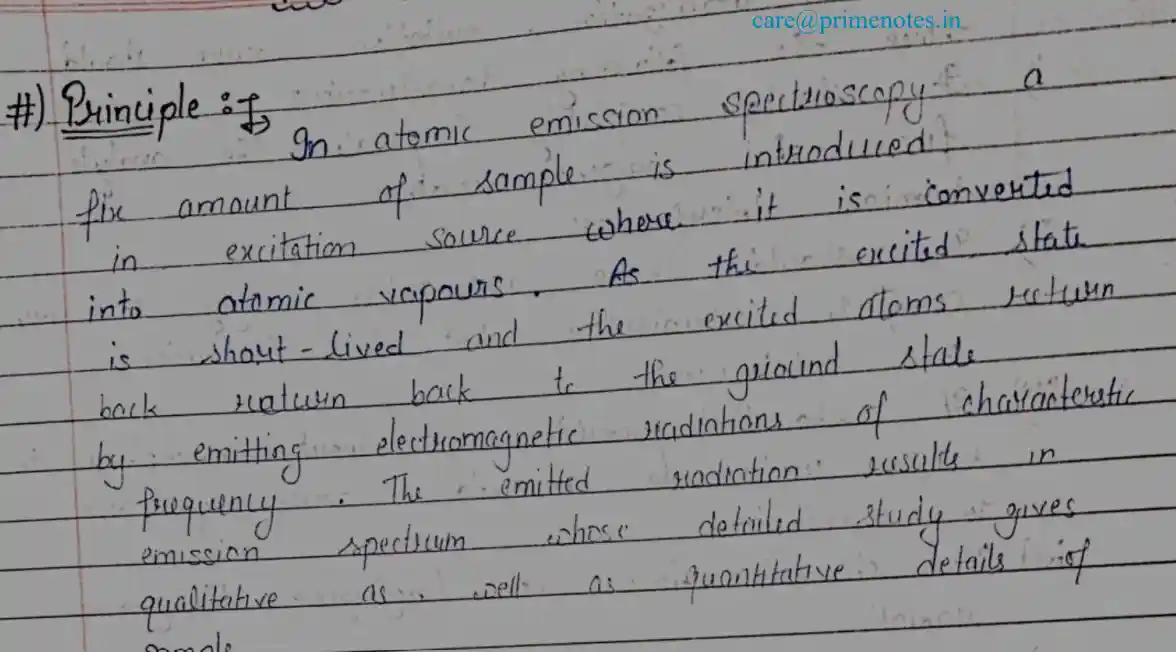 care@primenotes.in
#) Principle :-
In atomic emission spectroscopy a
fix amount of sample is introduced
in excitation source where it is converted
into atomic vapours. As the excited state
is short-lived and the excited atoms return
back return back to the ground state
by emitting electromagnetic radiations of characteristic
frequency. The emitted radiation results in
emission spectrum whose detailed study gives
qualitative as well as quantitative details of
sample